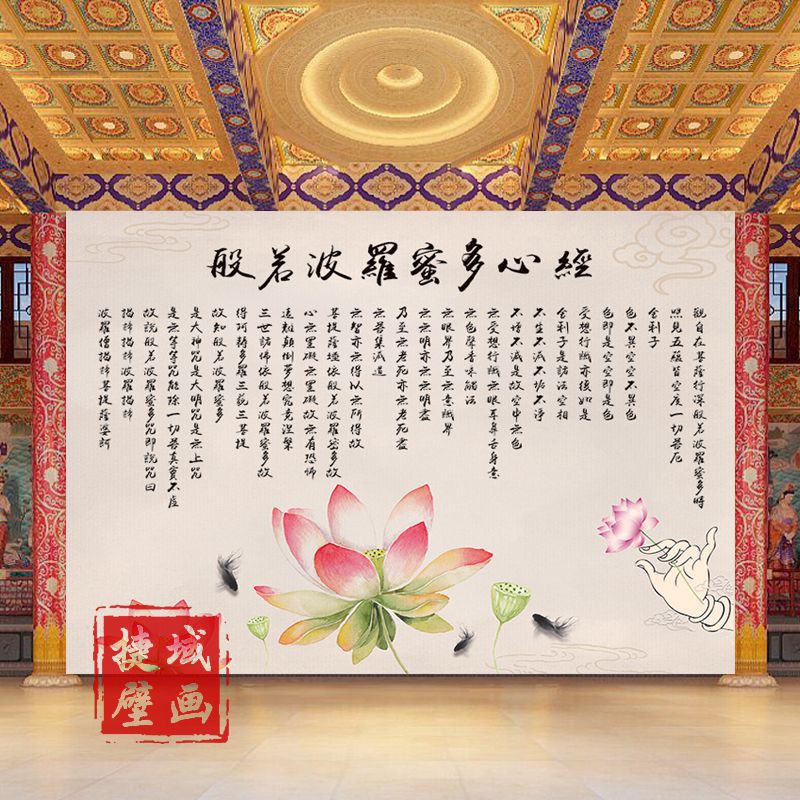 般若波羅蜜多心經
觀自在菩薩行深般若波羅蜜多時
照見五蘊皆空度一切苦厄
舍利子
色不異空空不異色
色即是空空即是色
受想行識亦復如是
舍利子是諸法空相
不生不滅不垢不淨
不增不減是故空中无色
无受想行識无眼耳鼻舌身意
无色聲香味觸法
无眼界乃至无意識界
无无明亦无无明盡
乃至无老死亦无老死盡
无苦集滅道
无智亦无得以无所得故
菩提薩埵依般若波羅蜜多故
心无罣礙无罣礙故无有恐怖
遠離顛倒夢想究竟涅槃
三世諸佛依般若波羅蜜多故
得阿耨多羅三藐三菩提
故知般若波羅蜜多
是大神咒是大明咒是无上咒
是无等等咒能除一切苦真實不虛
故說般若波羅蜜多咒即說咒曰
揭諦揭諦波羅揭諦
波羅僧揭諦菩提薩婆訶
捷域
壁画